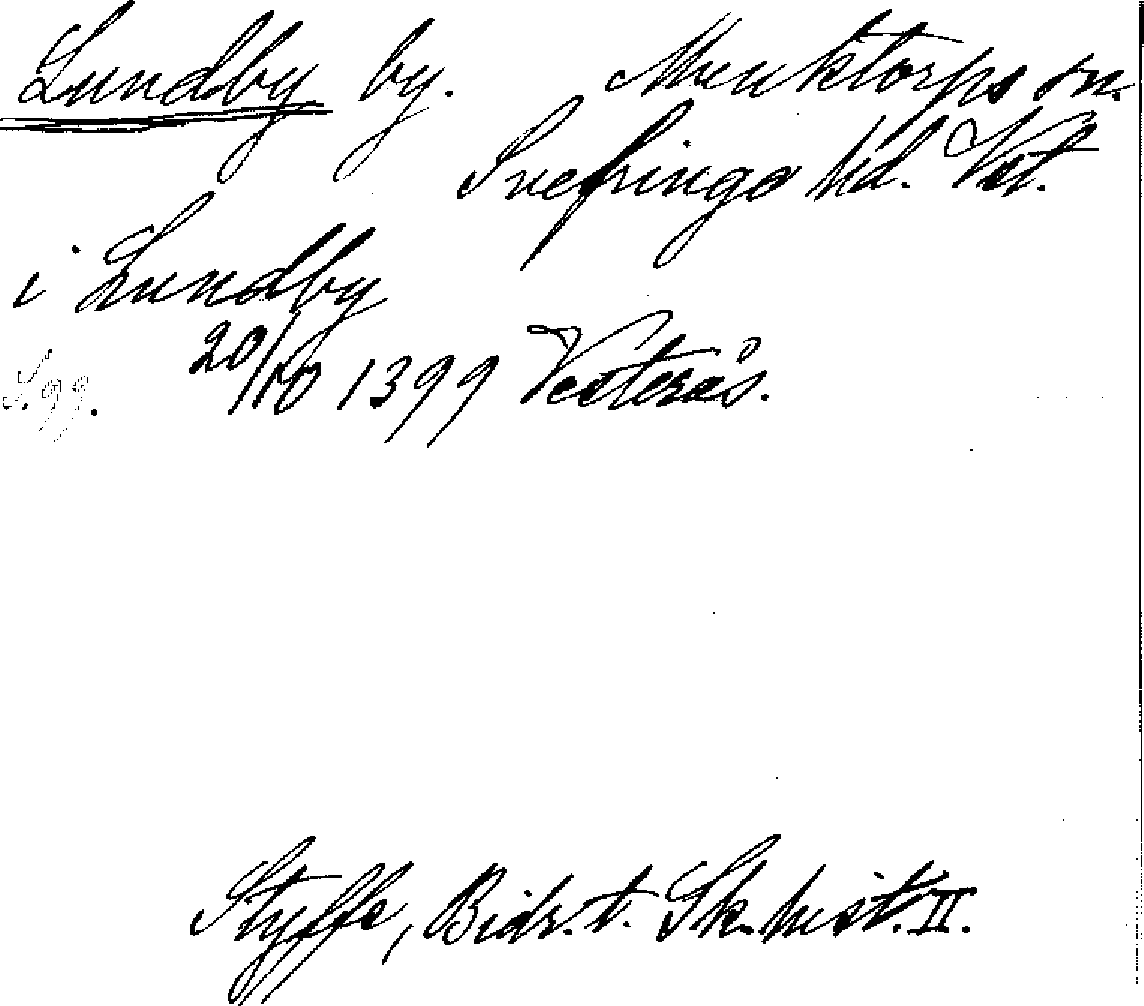 Lundby by. Munktorps sn.
Snefringe hd. Vst.
i Lundby
20/10 1399 Vesterås.
S. 99.
Styffe, Bidr. t. Sk. hist. II.